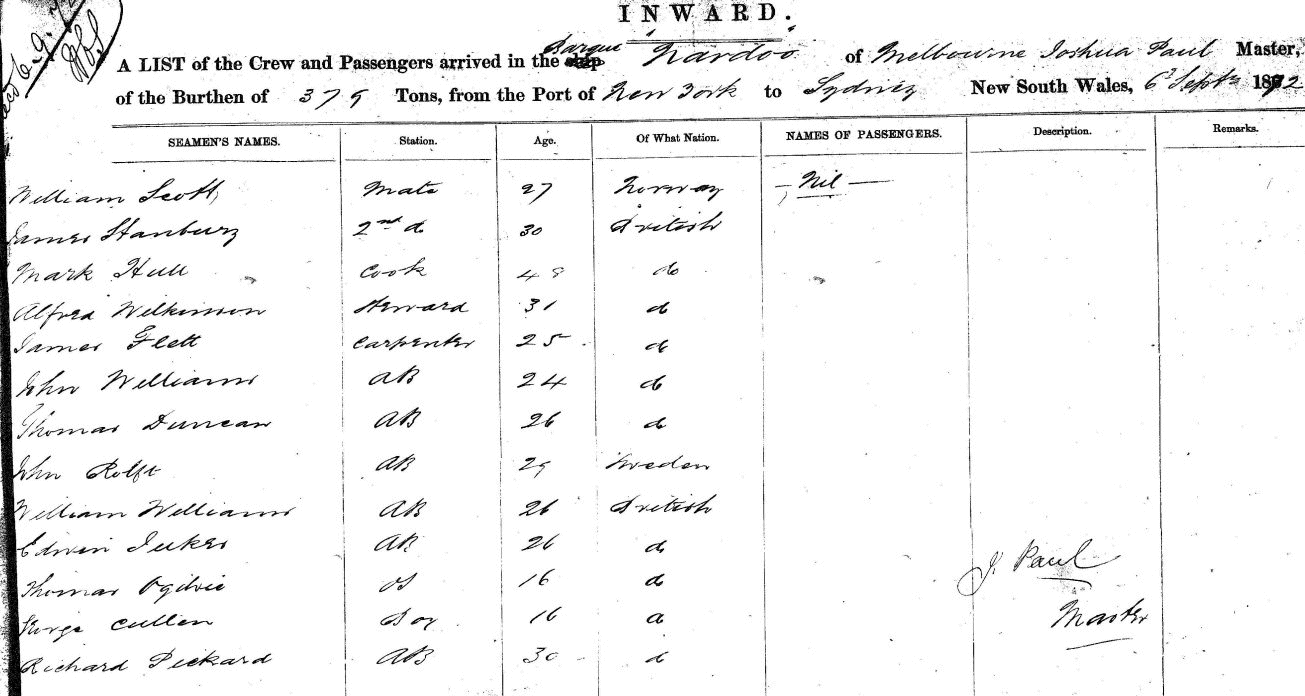 INWARD.
A LIST of the Crew and Passengers arrived in the Barque Nardoo of Melbourne Joshua Paul Master,
of the Burthen of 379 Tons, from the Port of New York to Sydney New South Wales, 6 Septr 1872
SEAMEN'S NAMES. Station. Age. Of What Nation. NAMES OF PASSENGERS. Description. Remarks.
William Scott Mate 27 Norway - Nil -
James Stanbury 2nd do 30 British
Mark Hull Cook 48 do
Alfred Wilkinson Steward 31 do
James Flett Carpenter 25 do
John Williams AB 24 do
Thomas Duncan AB 26 do
John Rolft AB 29 Sweden
William Williams AB 26 British
Edwin Jukes AB 26 do
Thomas Ogilvie OS 16 do
George Cullen Boy 16 do
Richard Pickard AB 30 do
J. Paul
Master